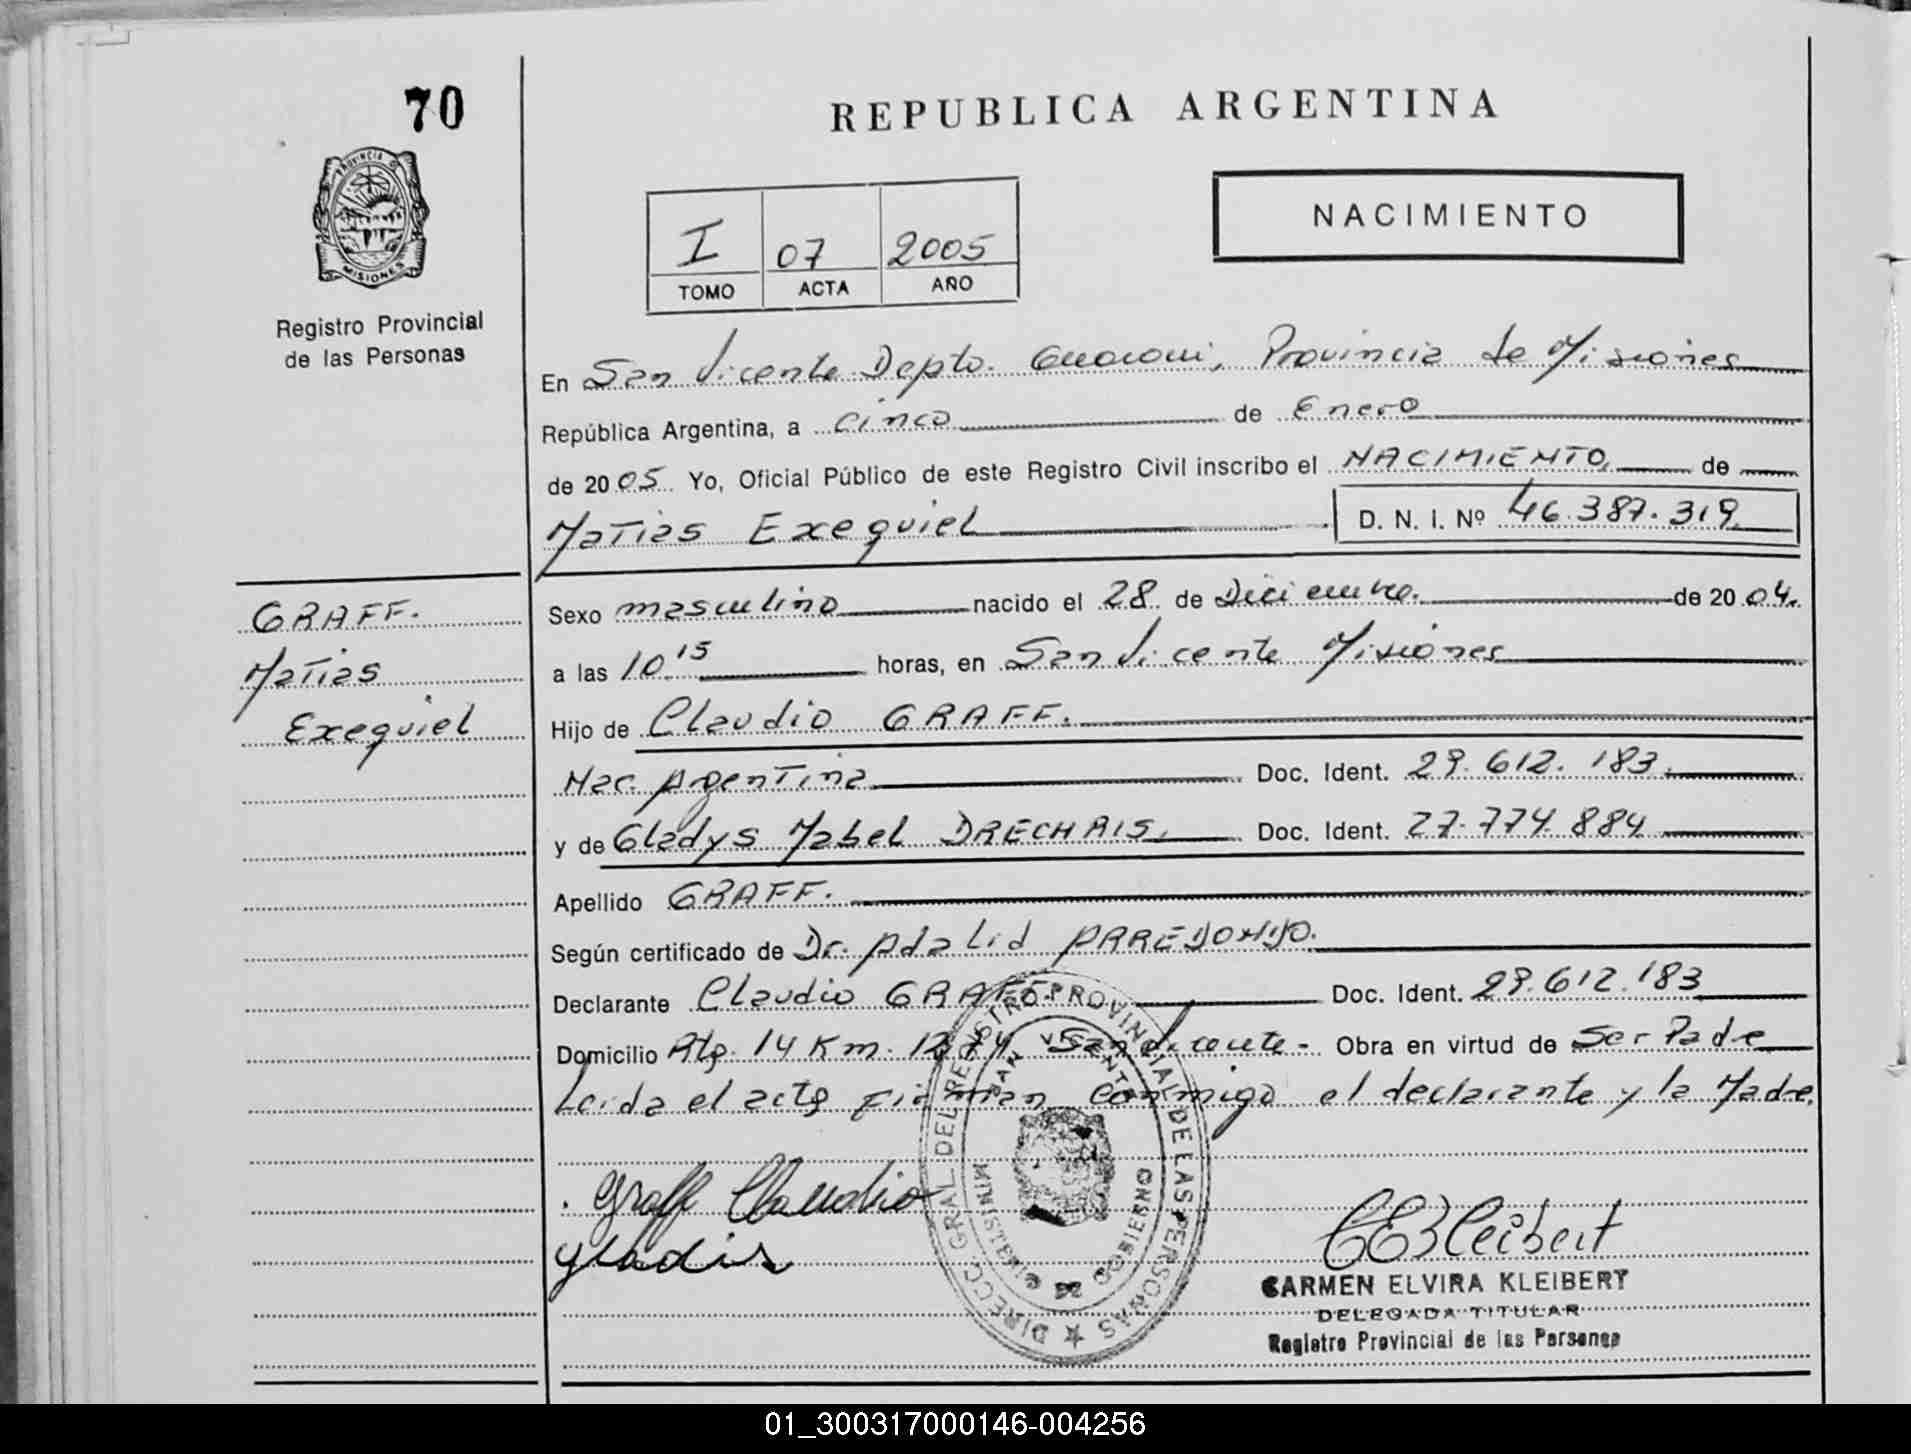 70
REPUBLICA ARGENTINA
PROVINCIA DE
MISIONES
Registro Provincial
de las Personas
NACIMIENTO
I 07 2005
TOMO ACTA AÑO
En San Vicente Depto. Guarani, Provincia de Misiones
República Argentina, a cinco de Enero
de 2005 Yo, Oficial Público de este Registro Civil inscribo el NACIMIENTO, de
Matias Exequiel D. N. I. Nº 46.387.319
GRAFF.
Matias
Exequiel
Sexo masculino nacido el 28 de Diciembre. de 2004.
a las 10 15 horas, en San Vicente Misiones
Hijo de Claudio GRAFF.
Nac. Argentina Doc. Ident. 29.612.183.
y de Gladys Mabel DRECHAIS, Doc. Ident. 27.774.884
Apellido GRAFF.
Según certificado de Dr. Adalid
Declarante Claudio GRAFF. Doc. Ident. 29.612.183
Domicilio 14 Km. San Vicente- Obra en virtud de Ser Padre
Leida el acta Firman conmigo el declarante y la Madre.
Graff Claudio
gladis
DIRECC. GRAL. DEL REGISTRO PROVINCIAL DE LAS PERSONAS
SAN VICENTE
MINISTERIO DE GOBIERNO
CEKleibert
CARMEN ELVIRA KLEIBERT
DELEGADA TITULAR
Registro Provincial de las Personas
01_300317000146-004256